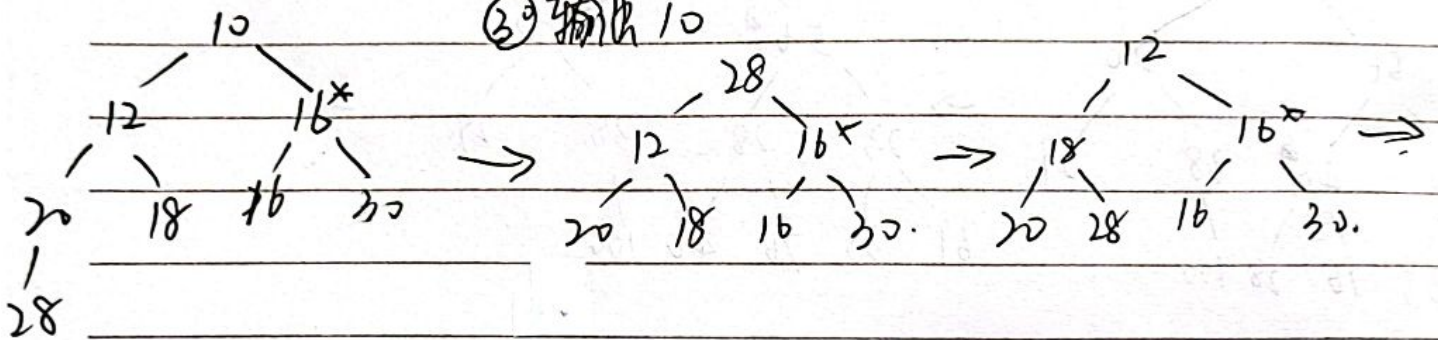 ③ 输出 10
10
12 16*
20 18 16 30
28
28
12 16*
20 18 16 30.
12
18 16*
20 28 16 30.